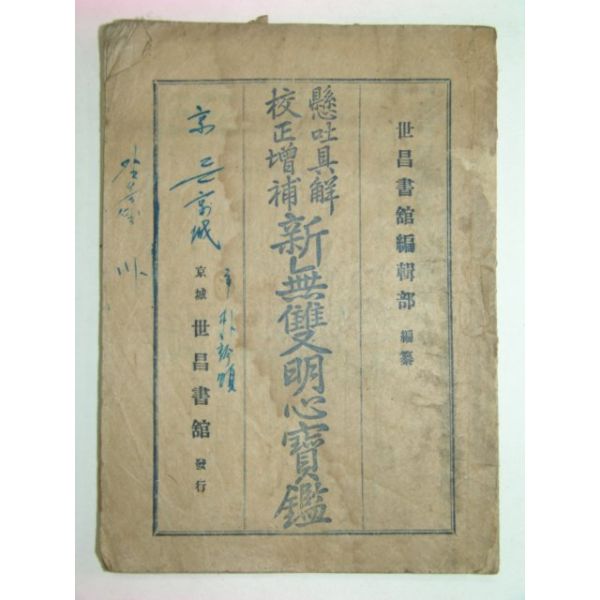 世昌書館編輯部 編纂
懸吐具解
校正增補
新無雙明心寶鑑
京城 世昌書館 發行